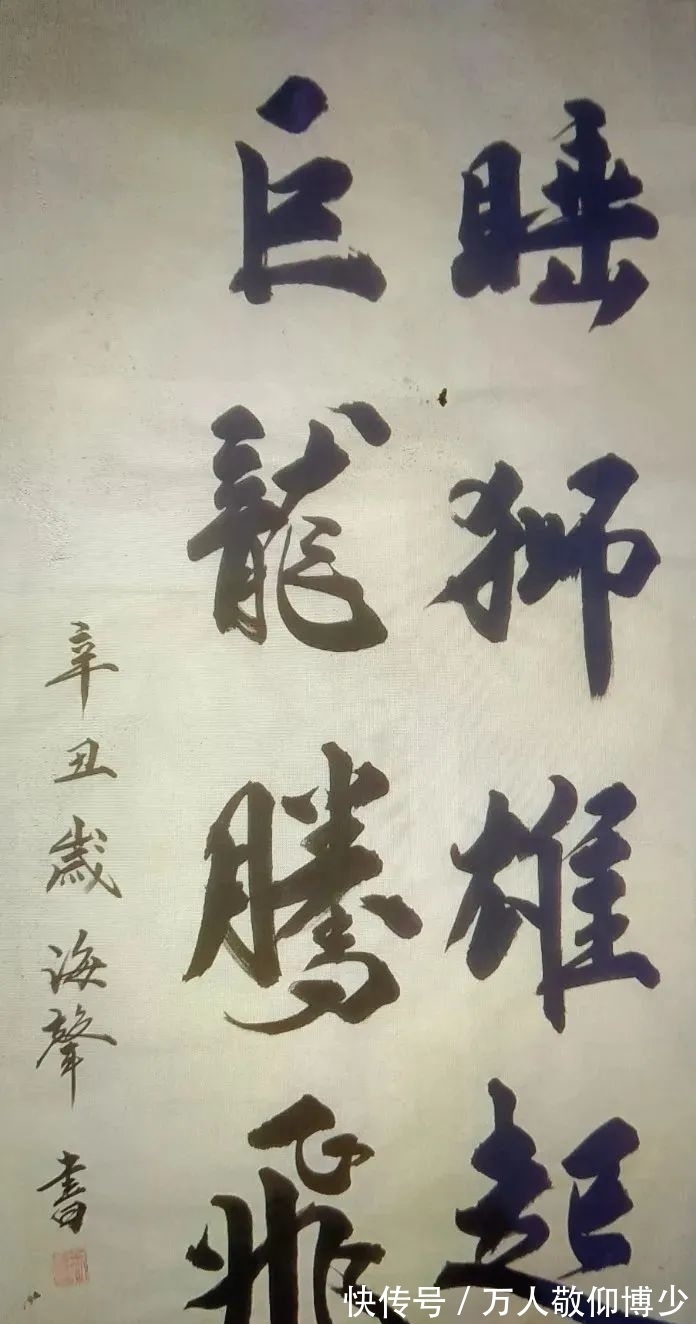 睡狮雄起
巨龍騰飛
辛丑歲海聲書
快传号 / 万人敬仰博少